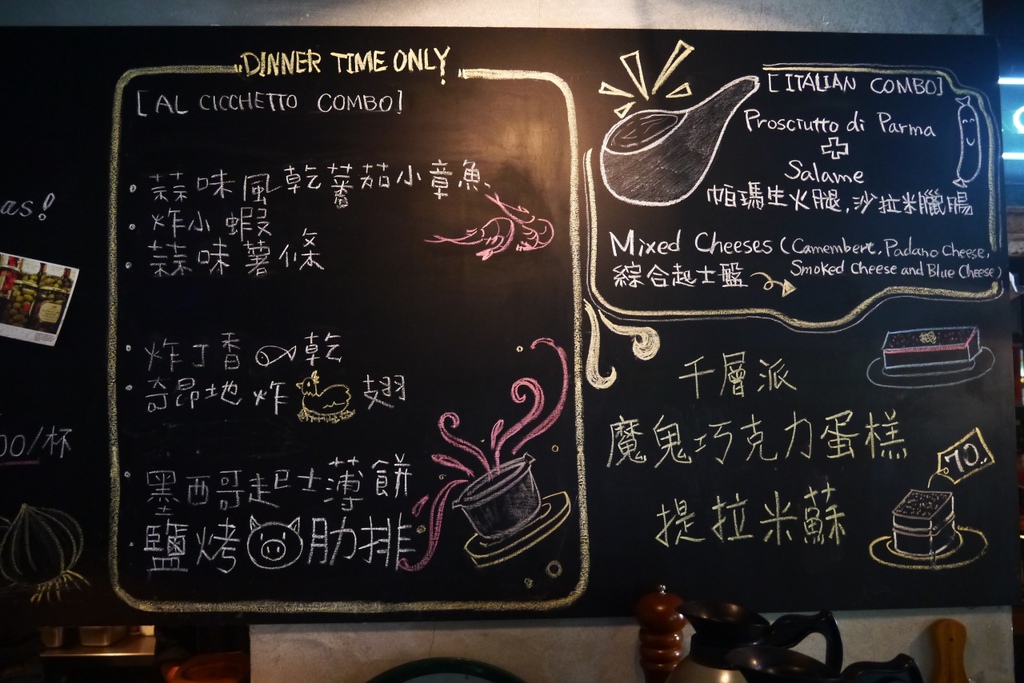 DINNER TIME ONLY!
[AL CICCHETTO COMBO]
• 蒜味風乾蕃茄小章魚
• 炸小蝦
• 蒜味薯條
• 炸丁香乾
• 奇昂地炸翅
• 墨西哥起士薄餅
• 鹽烤肋排
[ITALIAN COMBO]
Prosciutto di Parma
+
Salame
帕瑪生火腿,沙拉米臘腸
Mixed Cheeses (Camembert, Padano Cheese,
綜合起士盤 Smoked Cheese and Blue Cheese)
千層派
魔鬼巧克力蛋糕
70.
提拉米蘇
as!
00/杯